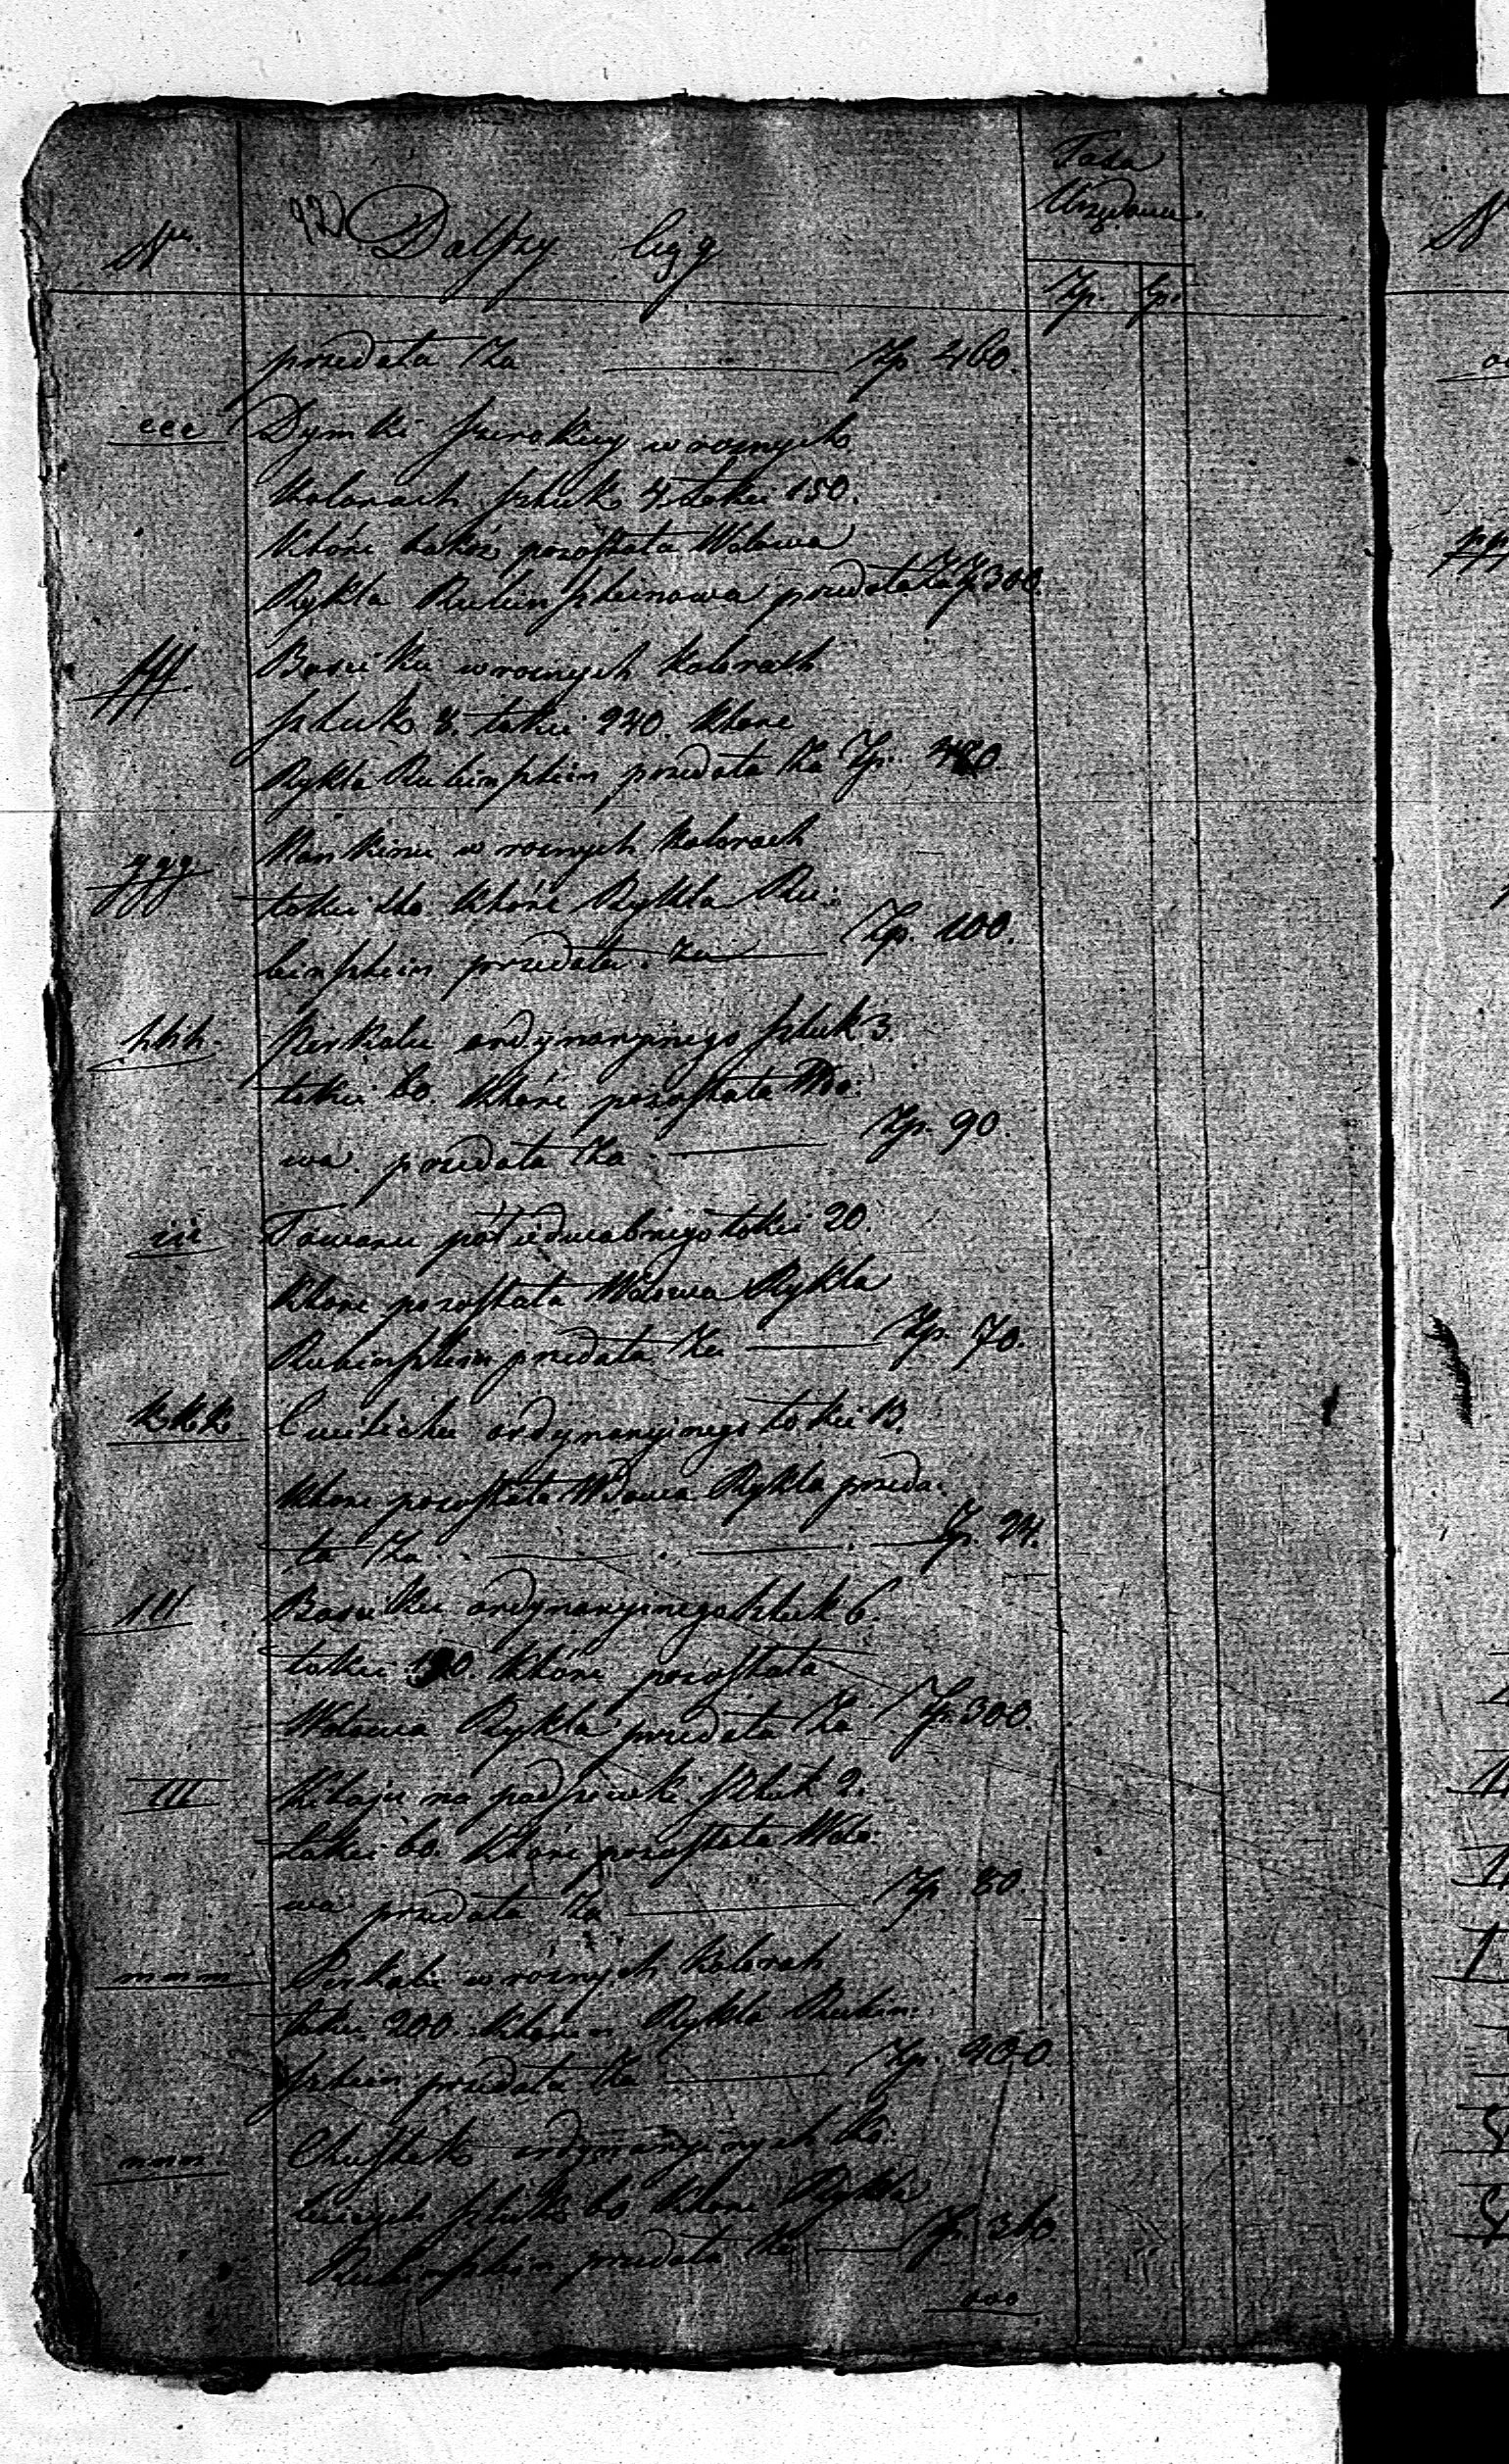 Taxa
Urzędowa.
Nro. Dalszy Ciąg
Zp. gr.
przedała Za Zp. 460.
eee Dymki szerokiey w roznych
Kolorach sztuk 4. Łokci 150.
które także pozostała Wdowa
Rykla Rubinszteinowa przedała Za Zp 300.
fff Basciku w roznych kolorach
sztuk 8. łokci 240. które
Rykla Rubinsztein przedała Za Zp. 480.
ggg. Nankinu w roznych kolorach
łokci które Rykla Ru:
binsztein przedała Za Zp. 100.
hhh. Perkalu ordynaryinego sztuk 3.
łokci 60. które pozostała Wdo:
wa przedała Za Zp. 90.
iii Towaru pół iedwabnego łokci 20.
które pozostała Wdowa Rykla
Rubinsztein przedała Za Zp. 70.
kkk Cwilichu ordynaryinego łokci 13.
które pozostała Wdowa Rykla przeda:
ła Za Zp. 24.
lll Basciku ordynaryinego sztuk 6.
łokci które pozostała
Wdowa Rykla przedała Za Zp. 300.
lll Kitaju na podszewki sztuk 2.
łokci 60. które pozostała Wdo:
wa przedała Za Zp 80.
mmm Perkalu w roznych kolorah
łokci 200. które Rykla Rubin:
sztein przedała Za Zp. 400.
nnn. Chustek ordynaryinych ko:
sztuk 60 które Rykla
Rubinsztein przedała Za Zp. 360.
ooo
N